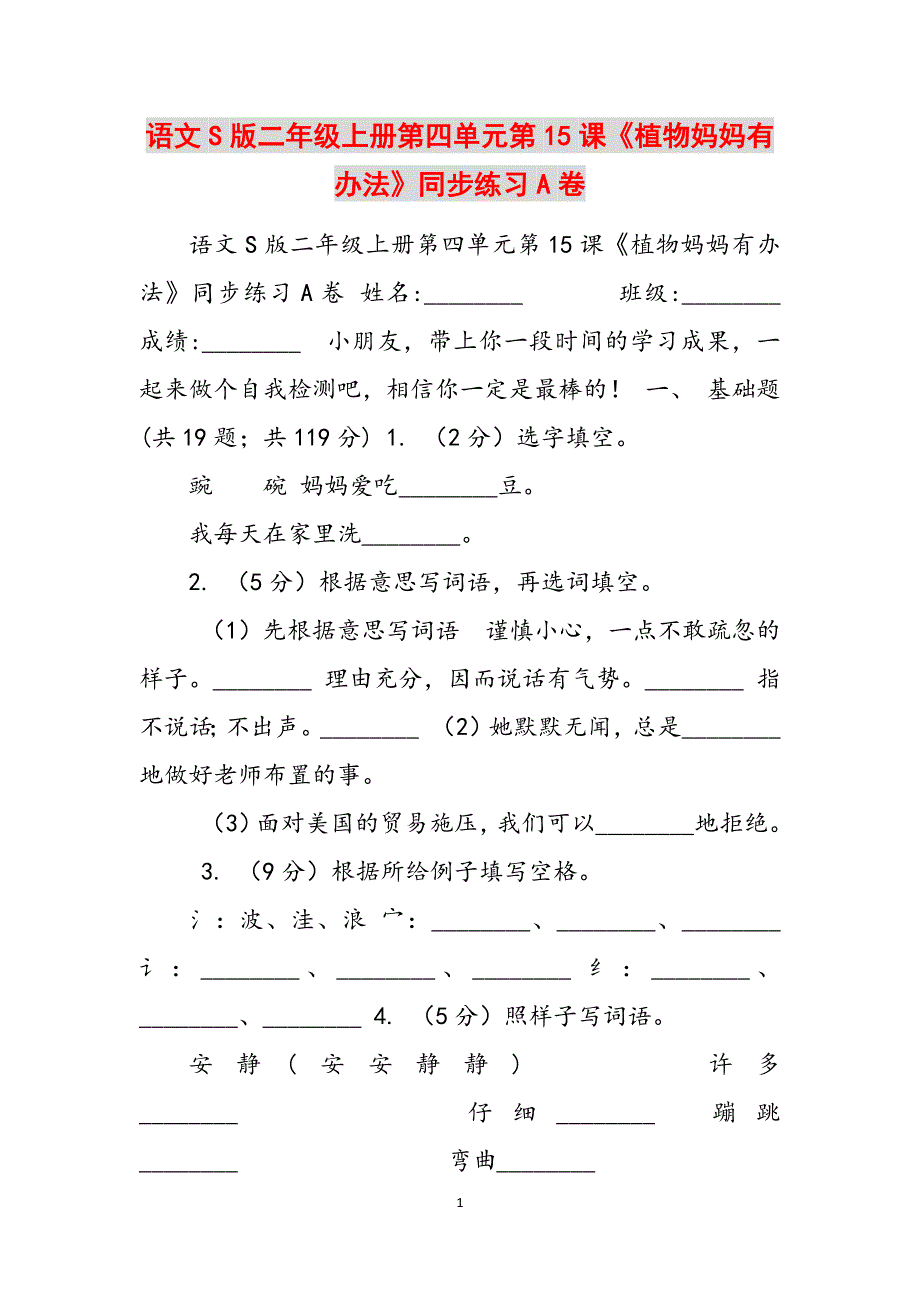 语文S版二年级上册第四单元第15课《植物妈妈有
办法》同步练习A卷
语文S版二年级上册第四单元第15课《植物妈妈有办
法》同步练习A卷 姓名:________ 班级:________
成绩:________ 小朋友，带上你一段时间的学习成果，一
起来做个自我检测吧，相信你一定是最棒的！ 一、 基础题
(共19题；共119分) 1. （2分）选字填空。
豌 碗 妈妈爱吃________豆。
我每天在家里洗________。
2. （5分）根据意思写词语，再选词填空。
（1）先根据意思写词语 谨慎小心，一点不敢疏忽的
样子。________ 理由充分，因而说话有气势。________ 指
不说话；不出声。________ （2）她默默无闻，总是________
地做好老师布置的事。
（3）面对美国的贸易施压，我们可以________地拒绝。
3. （9分）根据所给例子填写空格。
氵：波、洼、浪 宀：________、________、________
讠：________、________、________ 纟：________、
________、________ 4. （5分）照样子写词语。
安静(安安静静) 许多
________ 仔细________ 蹦跳
________ 弯曲________
1